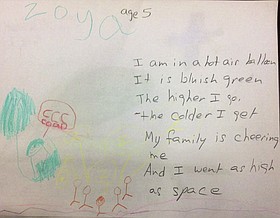 zoya age 5
I am in a hot air balloon
It is bluish green
The higher I go,
the colder I get
My family is cheering
me
And I went as high
as space